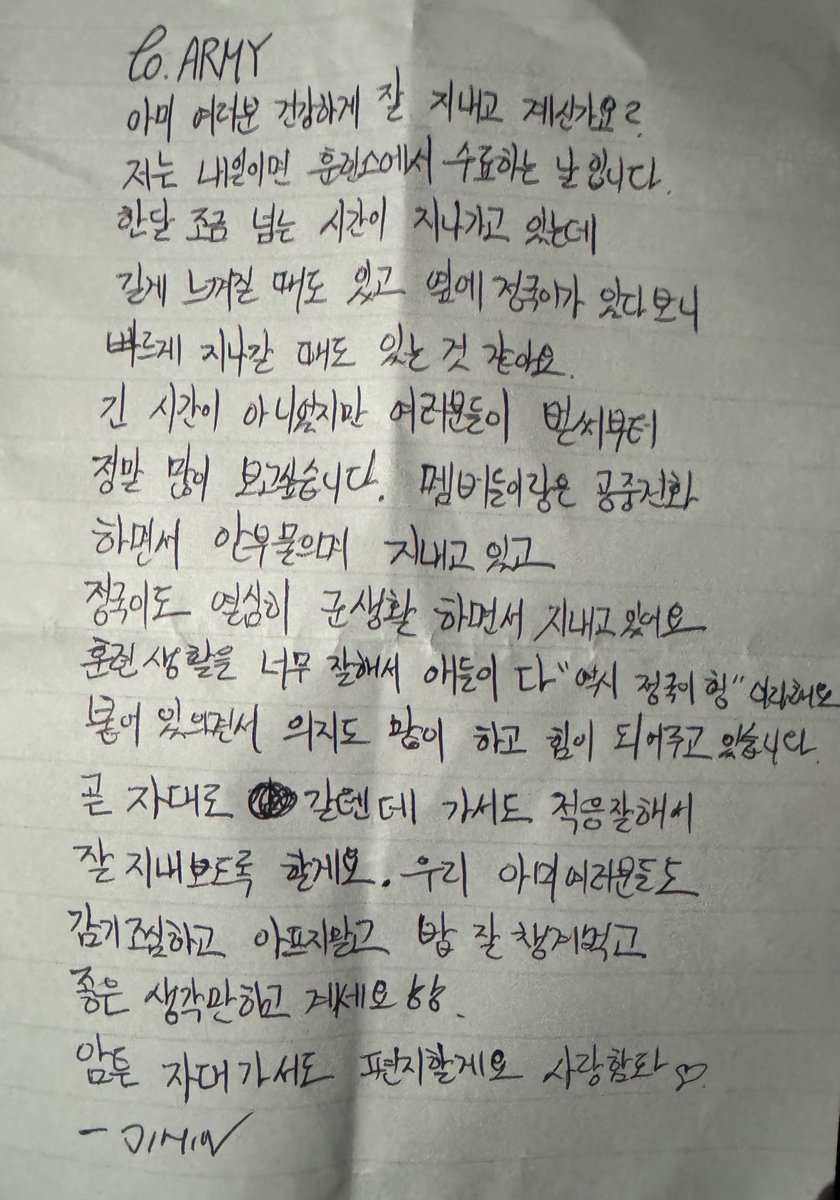 To. ARMY
아미 여러분 건강하게 잘 지내고 계신가요?
저는 내일이면 훈련소에서 수료하는 날 입니다.
한달 조금 넘는 시간이 지나가고 있는데
길게 느껴질 때도 있고 옆에 정국이가 있다보니
빠르게 지나갈 때도 있는 것 같아요.
긴 시간이 아니었지만 여러분들이 벌써부터
정말 많이 보고싶습니다. 멤버들이랑은 공중전화
하면서 안부 물으며 지내고 있고
정국이도 열심히 군생활 하면서 지내고 있어요
훈련 생활을 너무 잘해서 애들이 다 "역시 정국이 형" 이라해요
붙어 있으면서 의지도 많이 하고 힘이 되어주고 있습니다.
곧 자대로 갈텐데 가서도 적응잘해서
잘 지내보도록 할게요. 우리 아미여러분들도
감기조심하고 아프지말고 밥 잘 챙겨먹고
좋은 생각만하고 계세요
암튼 자대가서도 편지할게요 사랑함돠♡.
- JIMIN